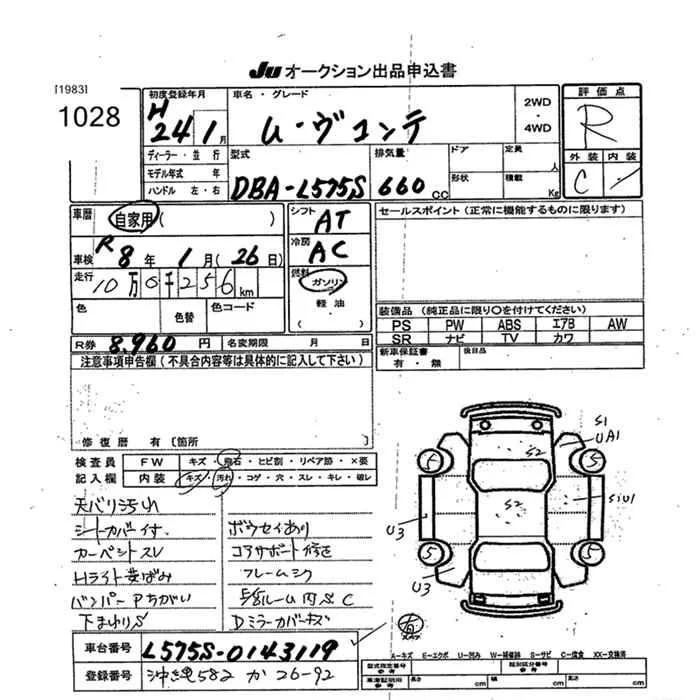 Ju オークション出品申込書
[1983]
1028
初度登録年月
H 24年 1月
車名・グレード
ム・ヴコンテ
2WD
・
4WD
評価点
R
外装 内装
C
ディーラー・並行
モデル年式 年
ハンドル 左・右
型式
DBA-L575S
排気量
660 CC
ドア
形状
定員
人
積載
Kg
車歴
自家用 ( )
シフト
AT
セールスポイント (正常に機能するものに限ります)
車検
R 8年 1月 (26日)
冷房
AC
走行
10万0千256 km
燃料
ガソリン
軽油
( )
色
色替
色コード
装備品 (純正品に限り〇を付けてください)
PS PW ABS エアB AW
SR ナビ TV カワ
R券 8,960 円 名変期限 月 日
新車保証書
有・無
後日品
注意事項申告欄 (不具合内容等は具体的に記入して下さい)
修復歴 有 [箇所 ]
検査員 FW キズ・飛石・ヒビ割・リペア跡・×要
記入欄 内装 キズ・汚れ・コゲ・穴・スレ・キレ・破レ
天バリ汚れ
シートカバー付.
カーペントスレ
Hライト黄ばみ
バンパーPちがい
下まわりS
ボウセイあり
コアサポート修き
フレーム
ルーム内S C
Dミラーカバーキズ
S1
UA1
S2
5
5
S2
SiU1
U3
5
5
U3
有
車台番号 L575S-0143119
登録番号 沖縄582 か 26-92
A-キズ E-エクボ U-凹み W-補修跡 S-サビ C-腐食 XX-交換済
型式指定番号
参考
類別区分番号
参考
車庫証明用
参考
長さ cm
幅 cm
高さ cm